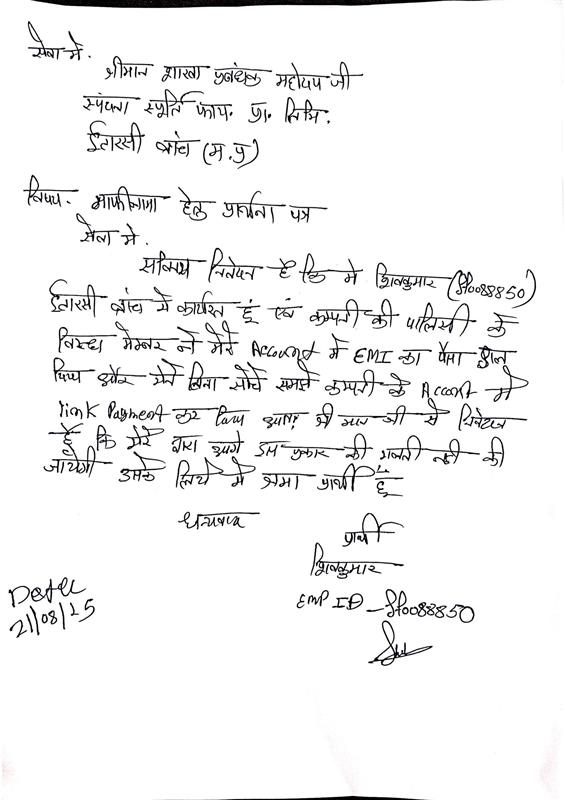 सेवा मे.
श्रीमान शाखा प्रबंधक महोदय जी
स्पंदना स्फूर्ति फाय. प्रा. लिमि.
ईटारसी ब्रांच (म.प्र)
विषय- माफीनामा हेतु प्रार्थना पत्र
सेवा मे.
सविनय निवेदन है कि मे शिवकुमार (Sf0088850)
ईटारसी ब्रांच मे कार्यरत हूं एवं कम्पनी की पालिसी के
विरुध मेम्बर ने मेरे Account मे EMI का पैसा डाल
दिया और मेने बिना सोचे समझे कम्पनी के Account मे
link Payment कर दिया श्री मान जी से निवेदन
है कि मेरे द्वारा आगे इस प्रकार की गलती नही की
जायेगी उसके लिये मे क्षमा प्रार्थी हूं
धन्यवाद
प्रार्थी
शिवकुमार
EMP ID - Sf0088850
Date
21/08/25